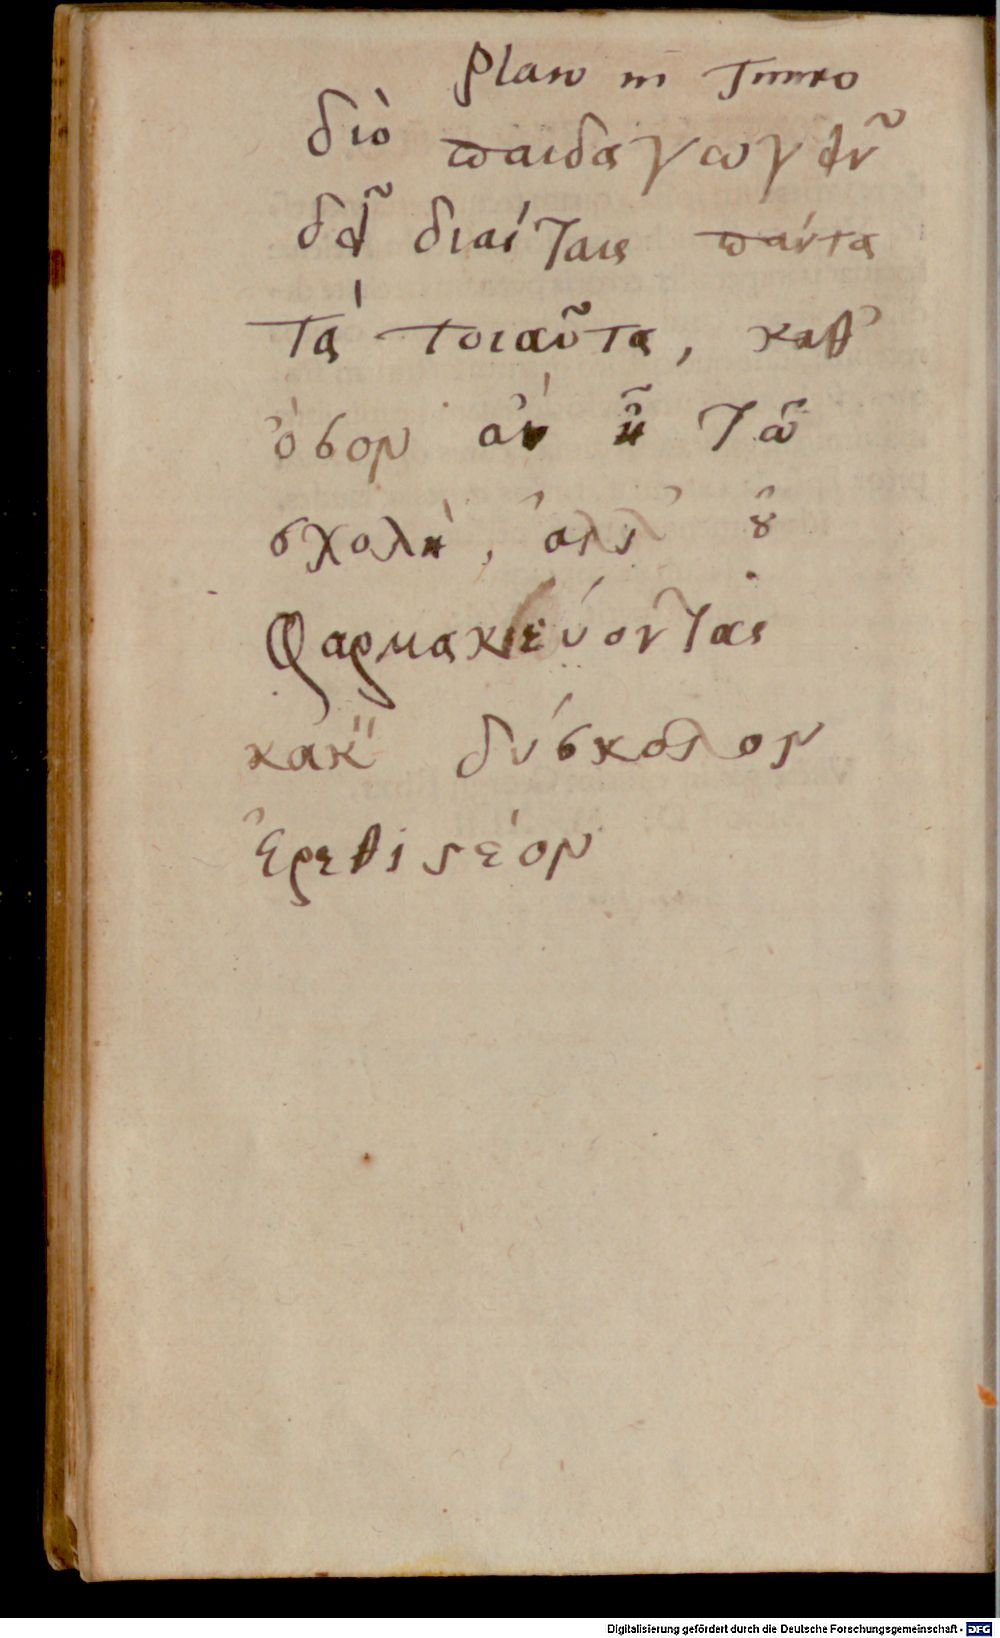 Plato in Timeo
διὸ παιδαγωγεῖν
δεῖ διαίταις πάντα
τὰ τοιαῦτα, καθ'
ὅσον ἂν ᾖ τῶ
σχολὴ, ἀλλ' οὐ
φαρμακεύοντας
κακὸν δύσκολον
ἐρεθιστέον
Digitalisierung gefördert durch die Deutsche Forschungsgemeinschaft - DFG